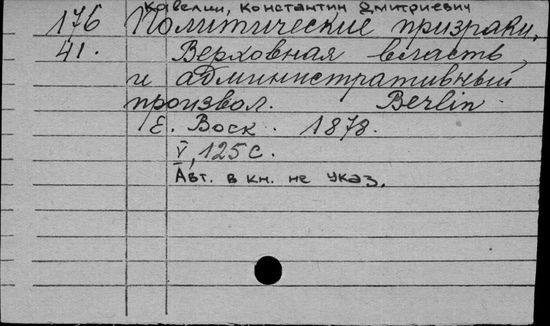 Кавелин, Константин Дмитриевич
176 Политические призраки.
41. Верховная власть
и административный
произвол. Berlin.
E. Bock. 1878.
V, 125 с.
Авт. в кн. не указ.